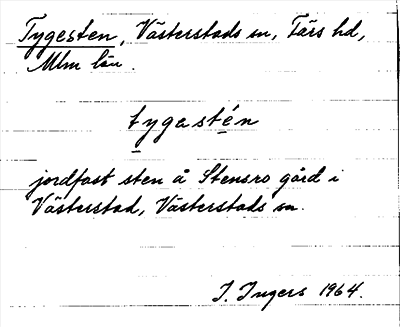 Tygesten, Västerstads sn, Färs hd,
Mlm län.
tygastén
jordfast sten å Stensro gård i
Västerstad, Västerstads sn.
I. Ingers 1964.